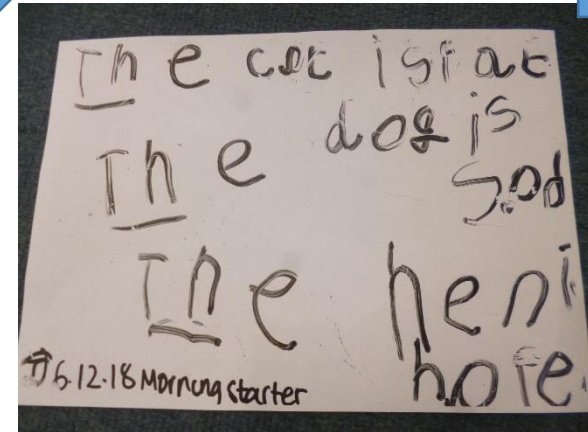 The cat is fat
The dog is
sad
The hen i
6.12.18 Morning starter